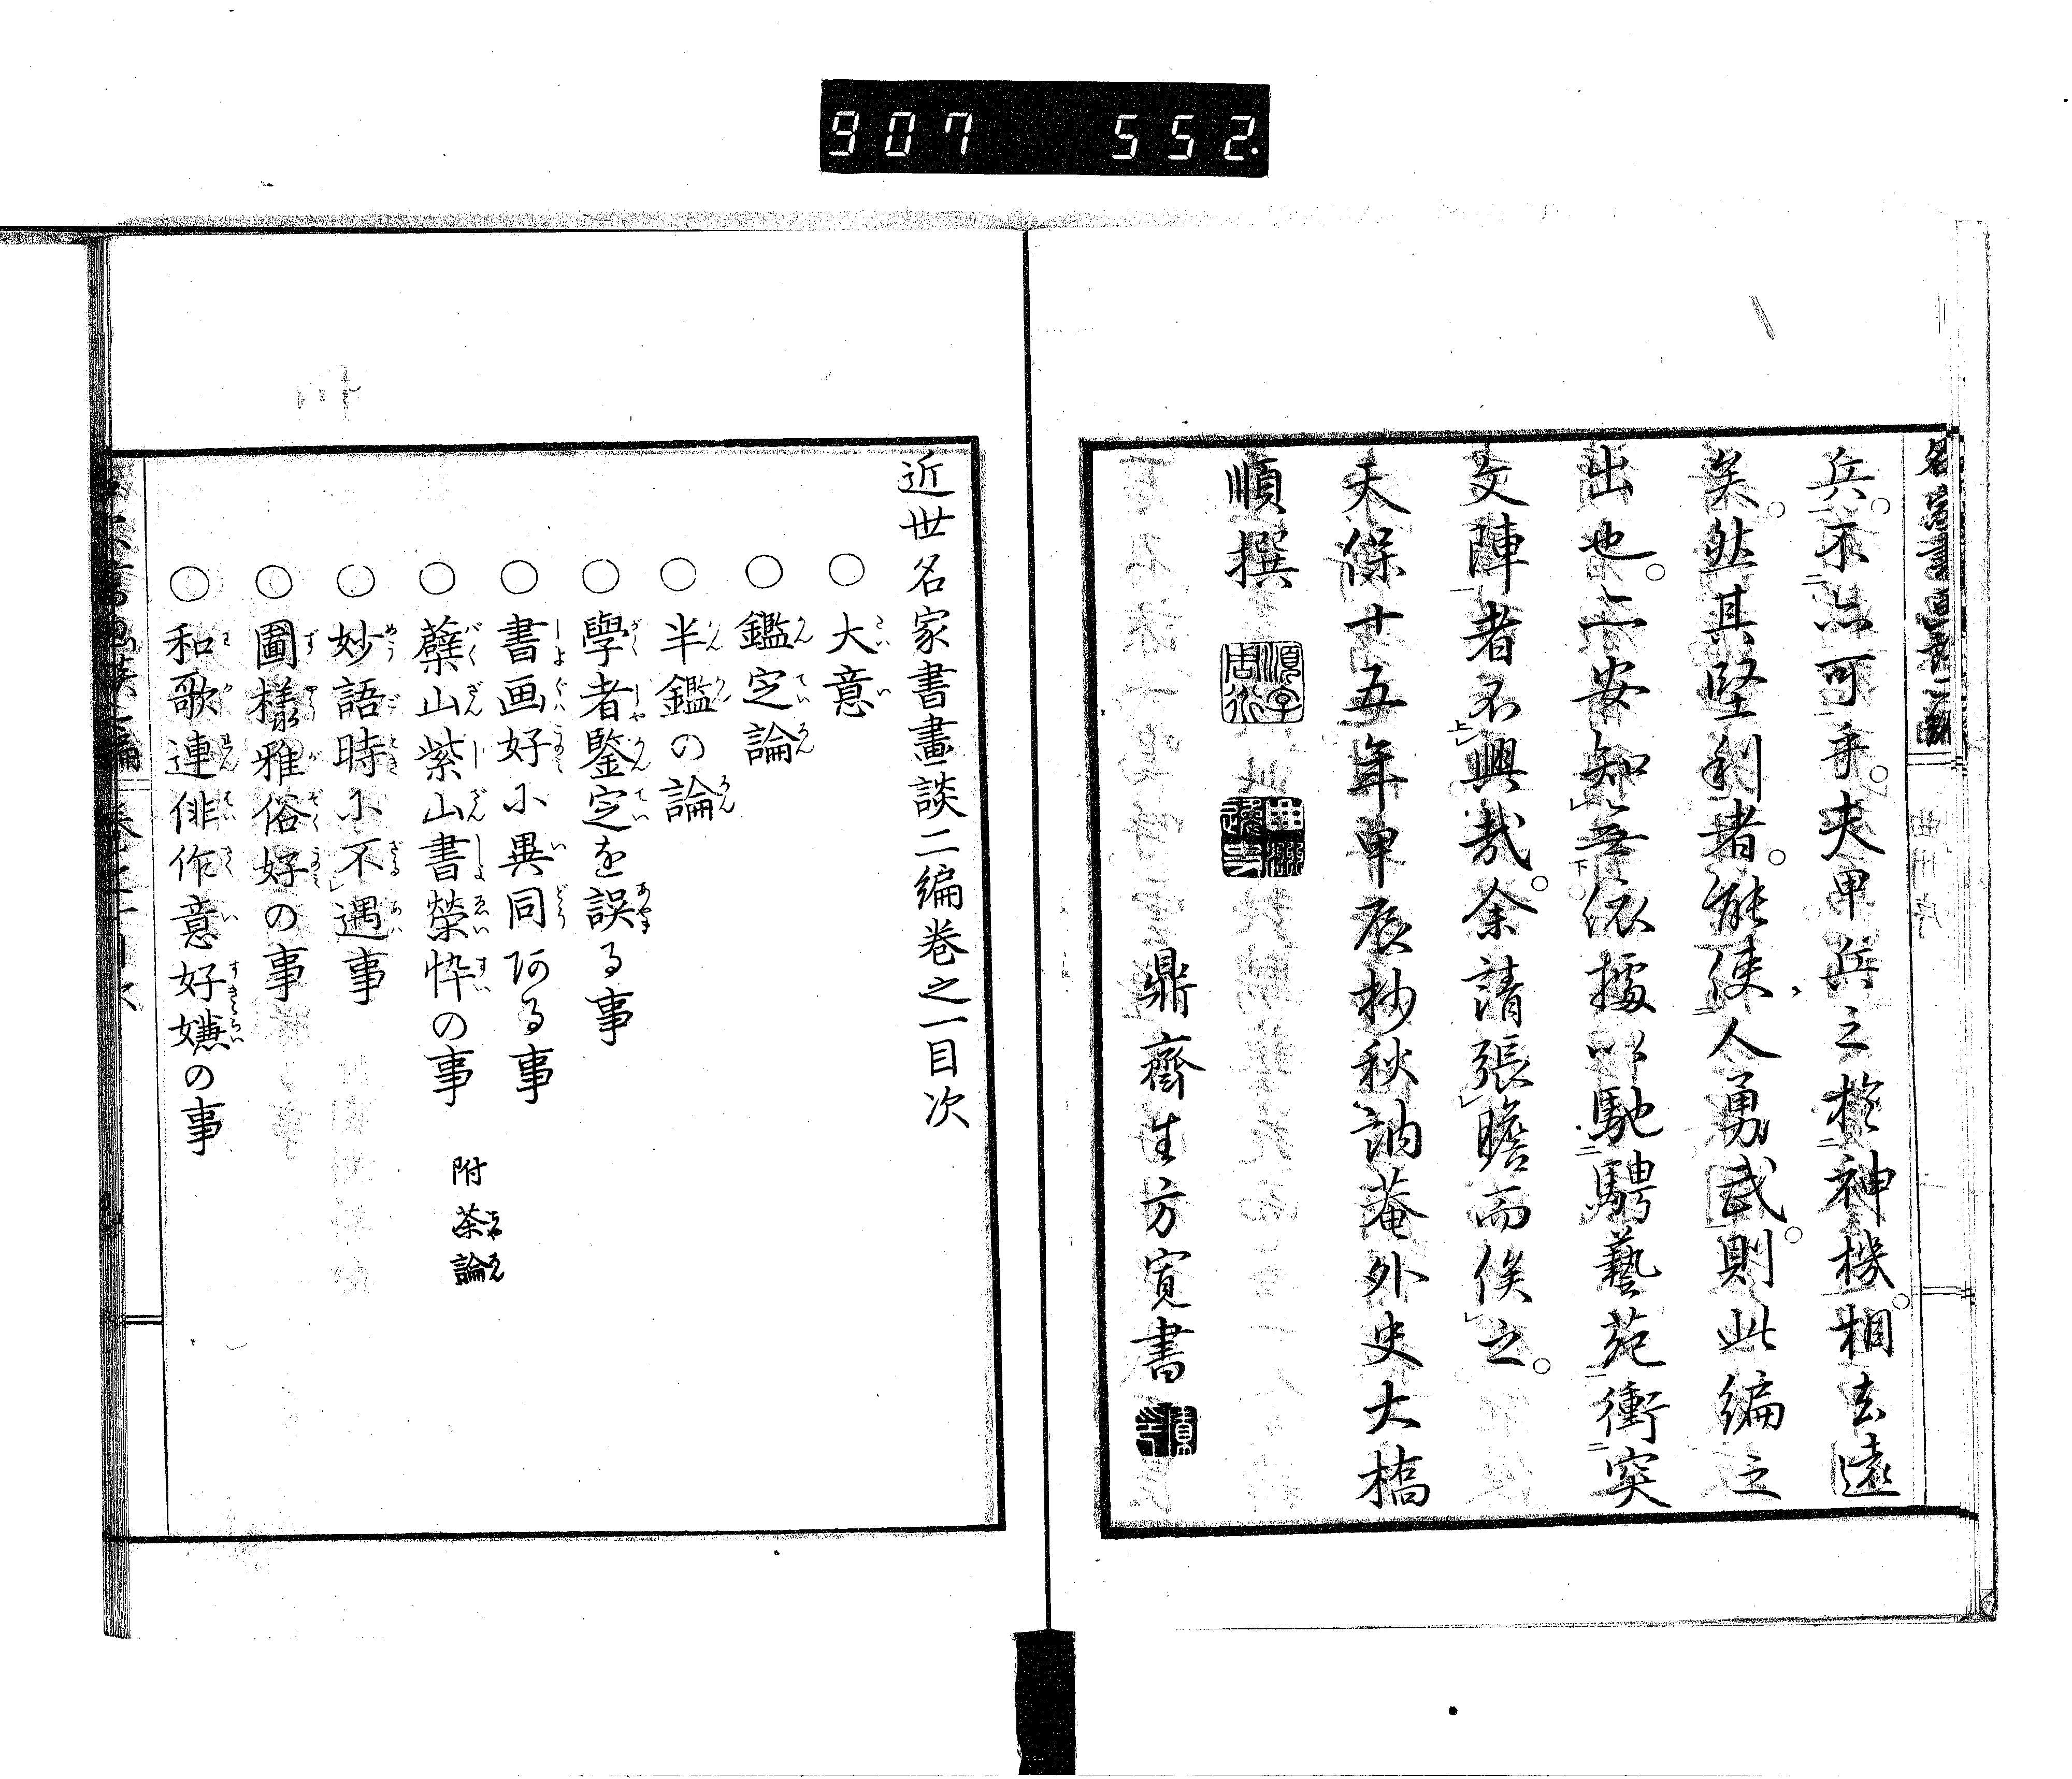 907 552.
兵。不亦可乎。夫甲兵之於神機。相去遠
矣。然其堅利者。能使人勇武。則此編之
出也。亦安知無依據以馳騁藝苑衝突
文陣者不興哉。余請張瞻而俟之。
天保十五年甲辰杪秋訥菴外史大橋
順撰
鼎齋生方寛書
近世名家書畫談二編巻之一目次
○大意
○鑑定論
○半鑑の論
○學者鑒定を誤る事
○書画好に異同ある事
○蘗山紫山書榮悴の事 附茶論
○妙語時に不遇事
○圖樣雅俗好の事
○和歌連俳作意好嫌の事